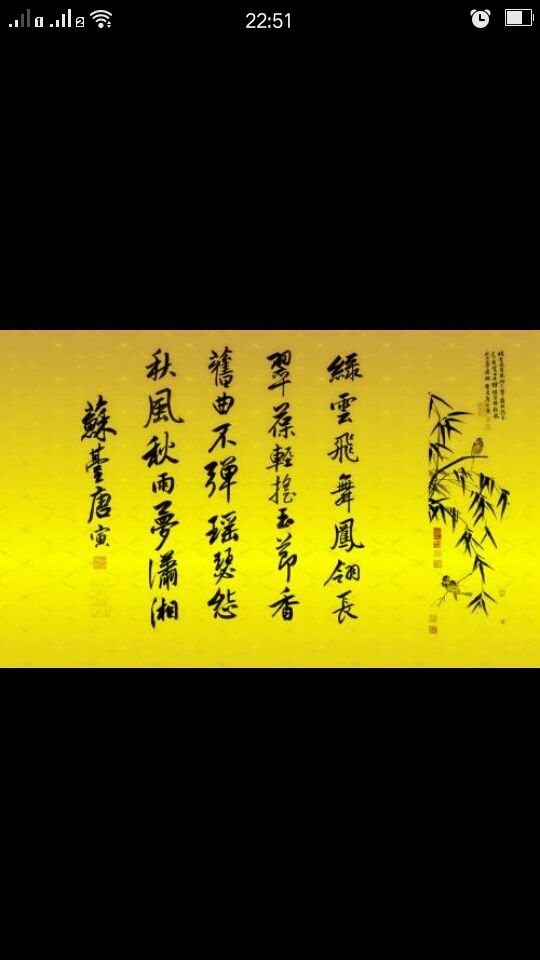 22:51
綠雲飛舞鳳翎長
翠葆輕搖玉節香
舊曲不彈瑶瑟怨
秋風秋雨夢瀟湘
蘇臺唐寅